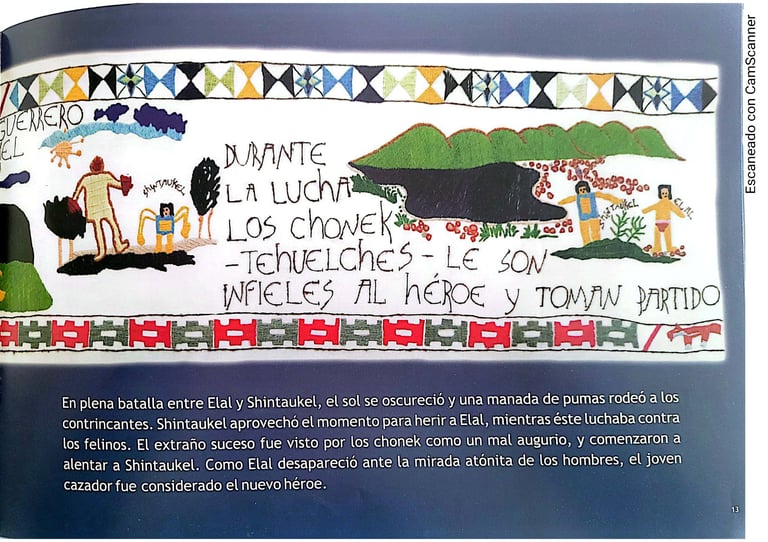 GUERRERO
EL
SHINTAUKEL
DURANTE
LA LUCHA
LOS CHONEK
-TEHUELCHES- LE SON
INFIELES AL HÉROE Y TOMAN PARTIDO
SHINTAUKEL
ELAL
En plena batalla entre Elal y Shintaukel, el sol se oscureció y una manada de pumas rodeó a los
contrincantes. Shintaukel aprovechó el momento para herir a Elal, mientras éste luchaba contra
los felinos. El extraño suceso fue visto por los chonek como un mal augurio, y comenzaron a
alentar a Shintaukel. Como Elal desapareció ante la mirada atónita de los hombres, el joven
cazador fue considerado el nuevo héroe.
13
Escaneado con CamScanner